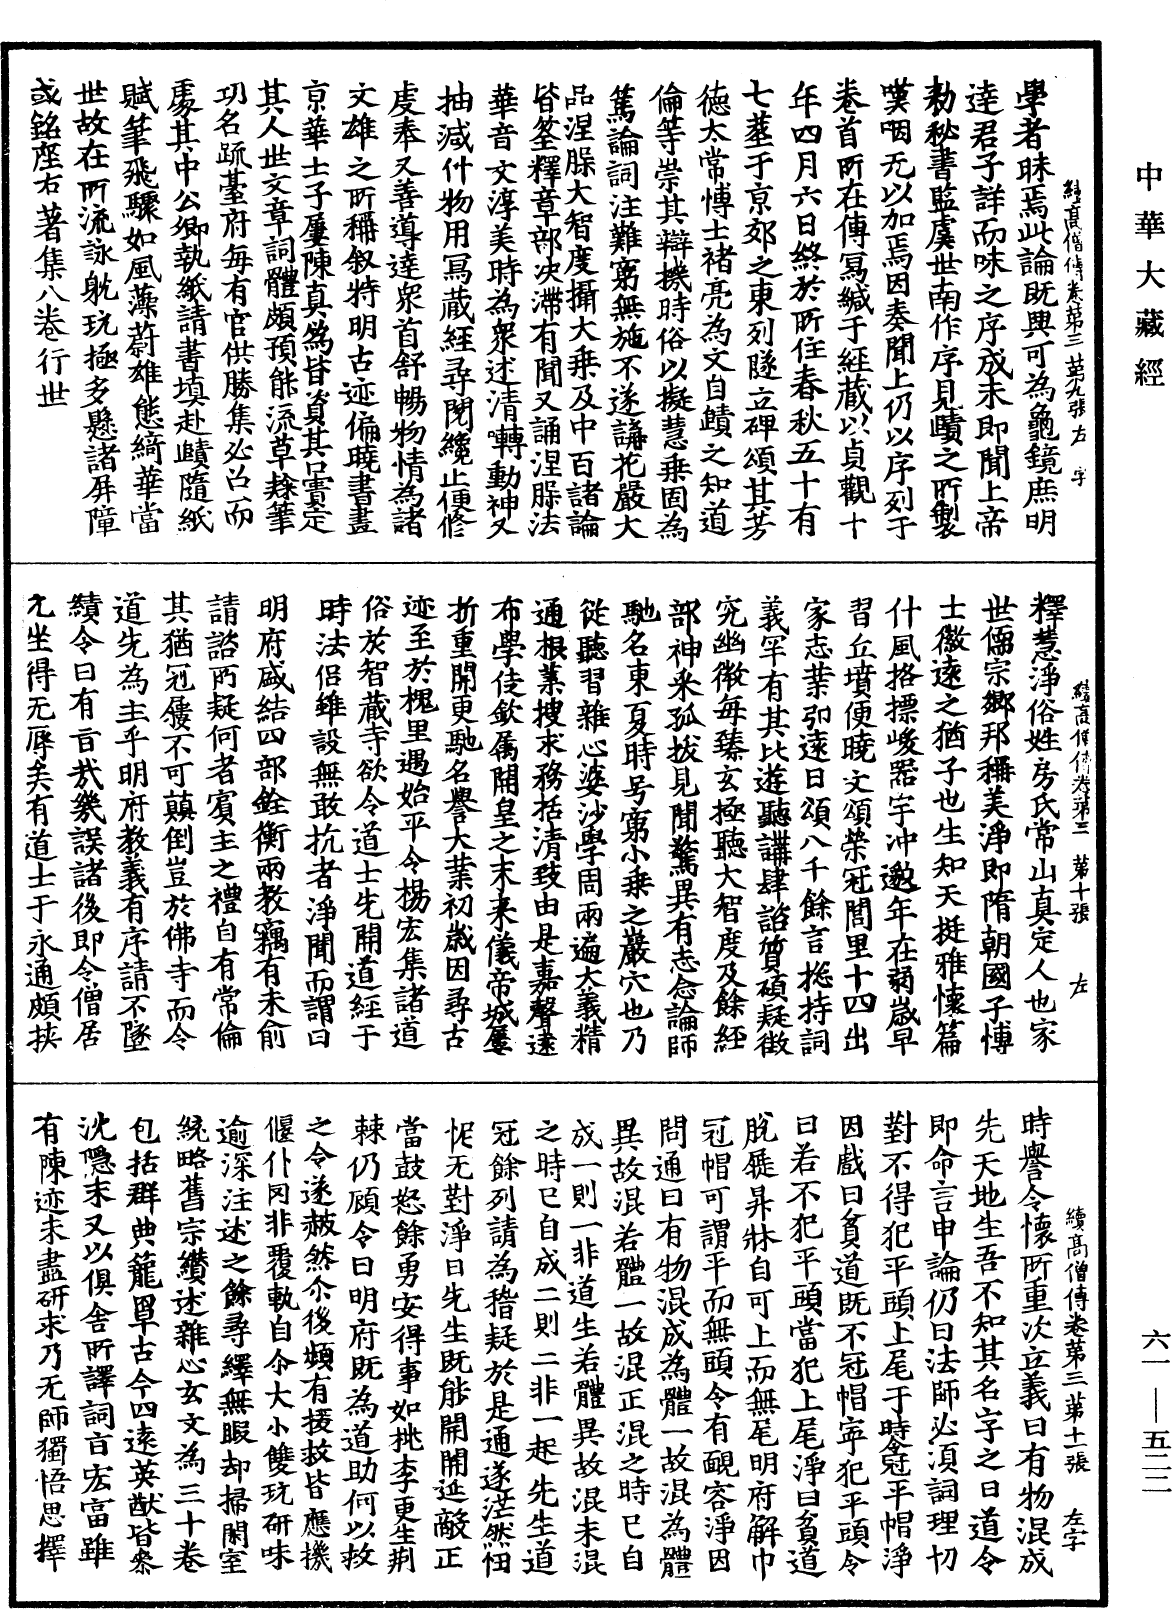 中華大藏經
續高僧傳卷第三 第九張 左字
學者昧焉此論既興可為龜鏡庶明
達君子詳而味之序成未即聞上帝
勑秘書監虞世南作序見賾之所製
嘆咽无以加焉因奏聞上仍以序列于
卷首所在傳寫緘于經藏以貞觀十
年四月六日終於所住春秋五十有
七葬于京郊之東列隧立碑頌其芳
德太常愽士褚亮為文自賾之知道
倫等崇其辯機時俗以擬慧乗固為
篤論詞注難窮無施不遂講花嚴大
品涅槃大智度攝大乗及中百諸論
皆筌釋章部决滯有聞又誦涅槃法
華音文淳美時為衆述清囀動神又
抽减什物用寫藏經尋閱纔止便修
虔奉又善導達衆首舒暢物情為諸
文雄之所稱叙特明古迹偏曉書畫
京華士子屢陳真偽皆資其口實定
其人世文章詞體頗預能流草隸筆
功名䟽臺府每有官供勝集必召而
處其中公卿執紙請書填赴賾隨紙
賦筆飛驟如風藻蔚雄態綺華當
世故在所流詠躭玩極多懸諸屏障
或銘座右著集八卷行世
續高僧傳卷第三 第十張 左
釋慧淨俗姓房氏常山真定人也家
世儒宗鄉邦稱美淨即隋朝國子愽
士徽遠之猶子也生知天挺雅懷篇
什風格摽峻器宇冲邈年在弱歲早
習丘墳便曉文頌榮冠閭里十四出
家志業弘遠日頌八千餘言揔持詞
義罕有其比遊聽講肆諮質碩疑徵
究幽微每臻玄極聽大智度及餘經
部神釆孤拔見聞驚異有志念論師
馳名東夏時号窮小乗之巖穴也乃
從聽習雜心婆沙學周兩遍大義精
通根葉搜求務括清致由是嘉聲遠
布學侣欽属開皇之末来儀帝城屢
折重開更馳名譽大業初歲因尋古
迹至於槐里遇始平令楊宏集諸道
俗於智藏寺欲令道士先開道經于
時法侣雖設無敢抗者淨聞而謂曰
明府盛結四部銓衡兩教竊有未俞
請諮所疑何者賔主之禮自有常倫
其猶冠屨不可顛倒豈於佛寺而令
道先為主乎明府教義有序請不墜
績令曰有旨㢤幾誤諸後即令僧居
先坐得无辱矣有道士于永通頗挟
續高僧傳卷第三 第十一張 左字
時譽令懷所重次立義曰有物混成
先天地生吾不知其名字之曰道令
即命言申論仍曰法師必須詞理切
對不得犯平頭上尾于時令冠平帽淨
因戲曰貧道既不冠帽寧犯平頭令
曰若不犯平頭當犯上尾淨曰貧道
脫屣昇牀自可上而無尾明府解巾
冠帽可謂平而無頭令有靦容淨因
問通曰有物混成為體一故混為體
異故混若體一故混正混之時已自
成一則一非道生若體異故混未混
之時已自成二則二非一起先生道
冠餘列請為稽疑於是通遂茫然忸
怩无對淨曰先生既能開開延敵正
當鼓怒餘勇安得事如桃李更生荆
棘仍顧令曰明府既為道助何以救
之令遂赧然尒後頻有援救皆應機
偃仆罔非覆軌自尒大小雙玩研味
逾深注述之餘尋繹無暇却掃閑室
統略舊宗纉述雜心玄文為三十卷
包括群典籠罩古今四遠英猷皆叅
沈隱末又以俱舍所譯詞旨宏富雖
有陳迹未盡研求乃无師獨悟思擇
六一—五二二